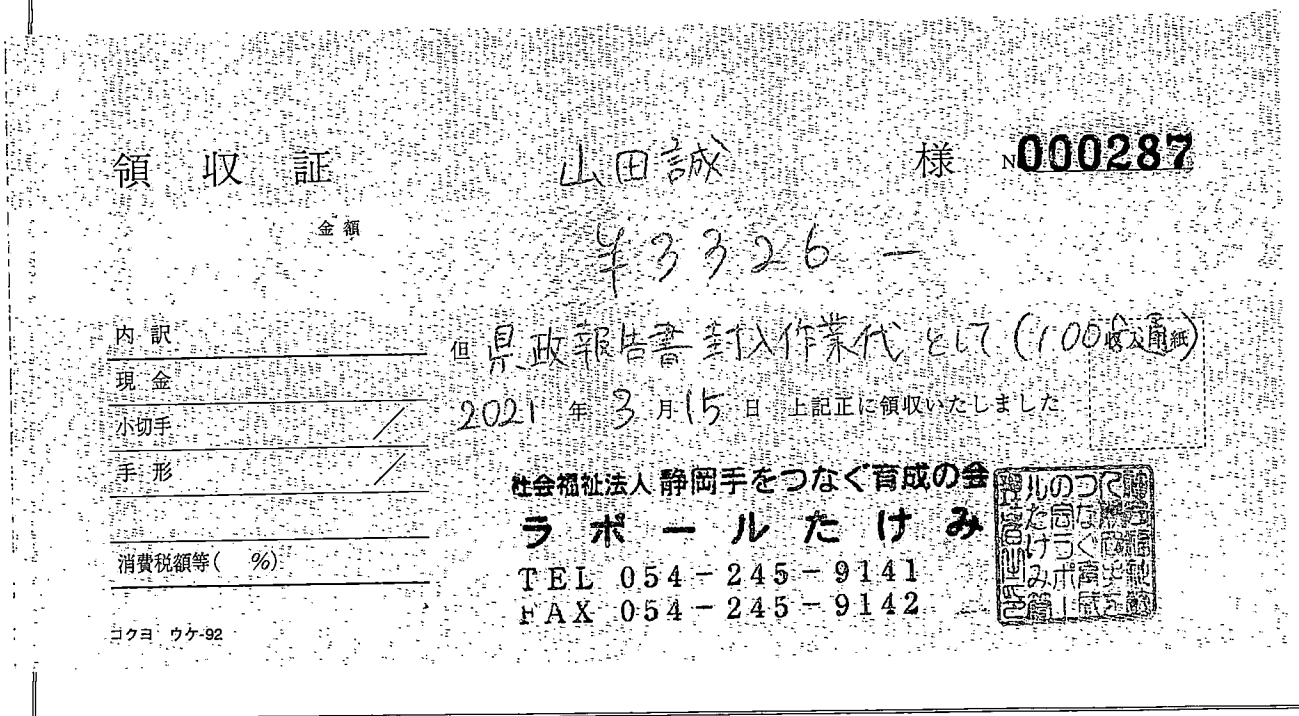 領収証 山田誠 様 №000287
金額 ¥3326-
内訳
現金
小切手 /
手形 /
消費税額等( %)
コクヨ ウケ-92
但 県政報告書封入作業代として(1008通)
収入印紙
2021年3月15日 上記正に領収いたしました
社会福祉法人 静岡手をつなぐ育成の会
ラポールたけみ
TEL 054-245-9141
FAX 054-245-9142